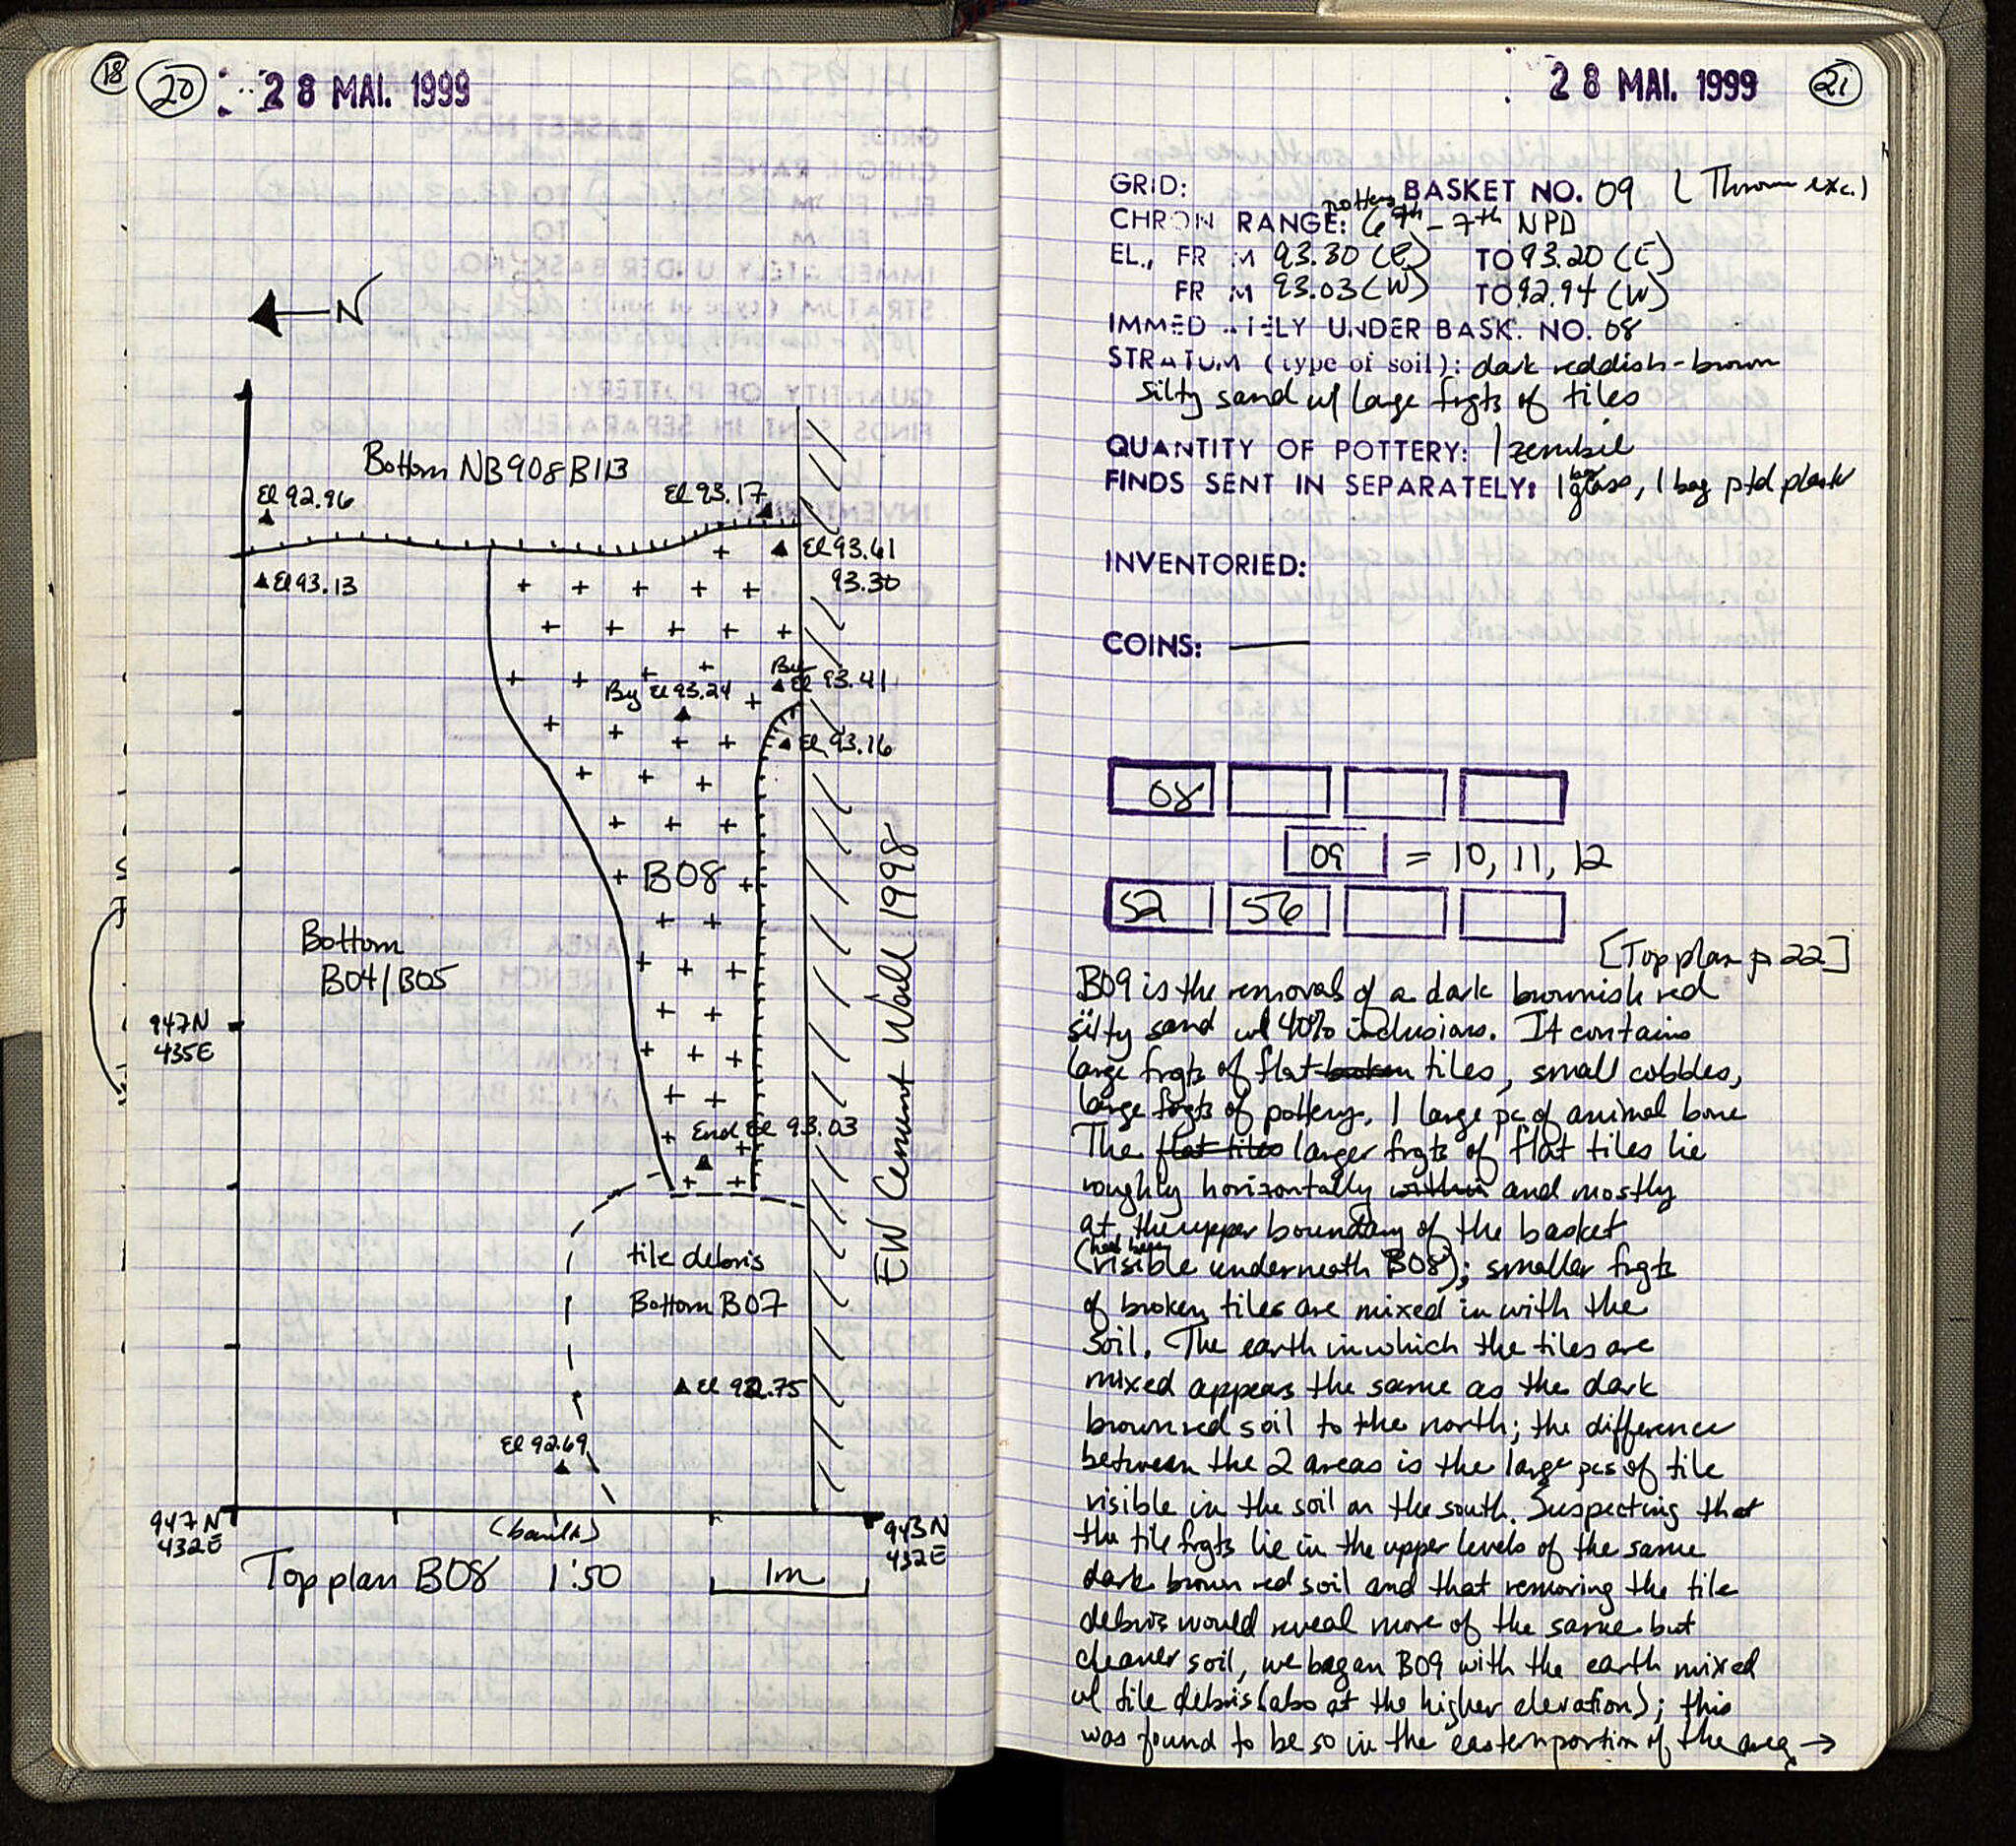 18
20
28 MAI. 1999
N
Bottom NB908 B113
El 92.96
El 93.17
El 93.61
93.30
El 93.13
By El 93.24
El 93.41
El 93.16
B08
Bottom
B04/B05
947N
435E
End El 93.03
EW Cement Wall 1998
tile debris
Bottom B07
El 92.75
El 92.69
947N
432E
(baulk)
943N
432E
Top plan B08 1:50
1m
28 MAI. 1999
21
GRID: BASKET NO. 09 (Throw exc.)
CHRON RANGE: pottery 6th - 7th NPD
EL., FR M 93.30 (E) TO 93.20 (E)
FR M 93.03 (W) TO 92.94 (W)
IMMED TELY UNDER BASK. NO. 08
STRATUM (type of soil): dark reddish-brown
silty sand w/ large frgts of tiles
QUANTITY OF POTTERY: 1 zembil
FINDS SENT IN SEPARATELY: 1 bag glass, 1 bag ptd plaster
INVENTORIED:
COINS: —
08
09 = 10, 11, 12
52 56
[Top plan p 22]
B09 is the removal of a dark brownish red
silty sand w/ 40% inclusions. It contains
large frgts of flat broken tiles, small cobbles,
large frgts of pottery, 1 large pc of animal bone
The flat tiles larger frgts of flat tiles lie
roughly horizontally within and mostly
at the upper boundary of the basket
(had been visible underneath B08); smaller frgts
of broken tiles are mixed in with the
soil. The earth in which the tiles are
mixed appears the same as the dark
brown red soil to the north; the difference
between the 2 areas is the large pcs of tile
visible in the soil on the south. Suspecting that
the tile frgts lie in the upper levels of the same
dark brown red soil and that removing the tile
debris would reveal more of the same but
cleaner soil, we began B09 with the earth mixed
w/ tile debris (also at the higher elevation); this
was found to be so in the eastern portion of the area →